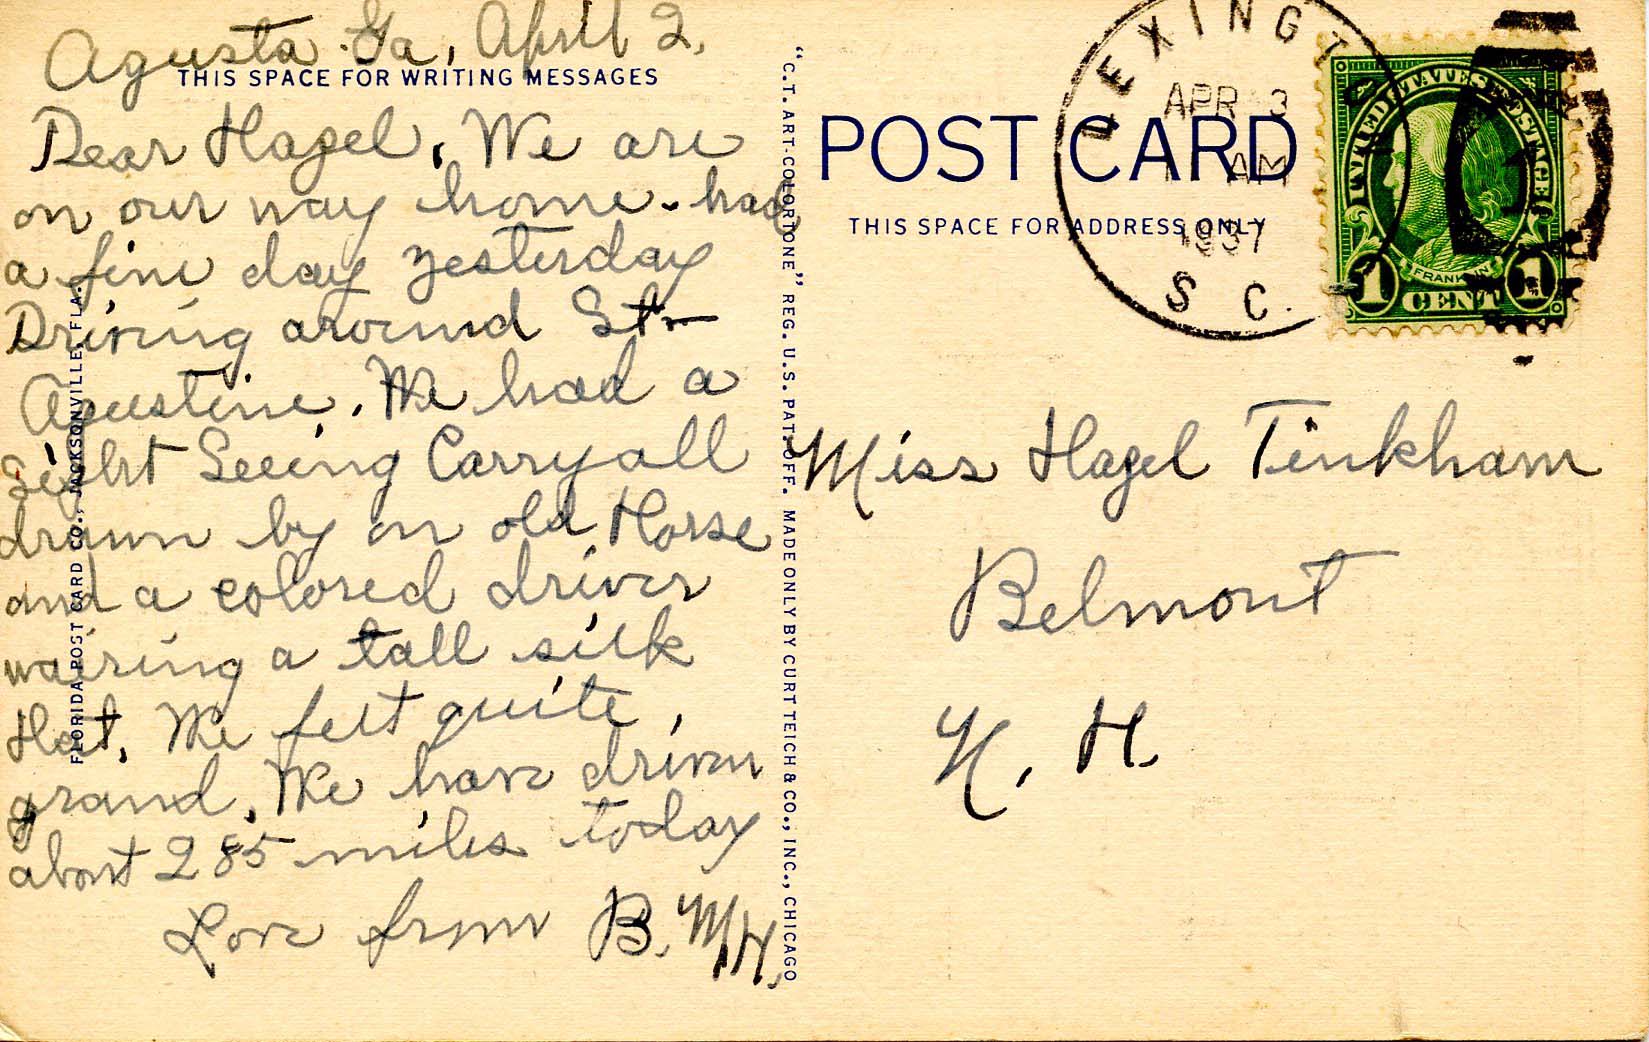 Agusta Ga, April 2,
THIS SPACE FOR WRITING MESSAGES
Dear Hazel, We are
on our way home - had
a fine day yesterday
Driving around St-
Agustine. We had a
Sight Seeing Carryall
drawn by an old Horse
and a colored driver
wairing a tall silk
Hat. We felt quite
grand. We have driven
about 285 miles today
Love from B. M. H.
FLORIDA POST CARD CO., JACKSONVILLE, FLA.
"C.T. ART-COLORTONE" REG. U.S. PAT. OFF. MADE ONLY BY CURT TEICH & CO., INC., CHICAGO
POST CARD
THIS SPACE FOR ADDRESS ONLY
LEXINGTO
APR 3
AM
1937
S C.
UNITED STATES POSTAGE
FRANKLIN
1 CENT 1
1
Miss Hazel Tinkham
Belmont
N. H.